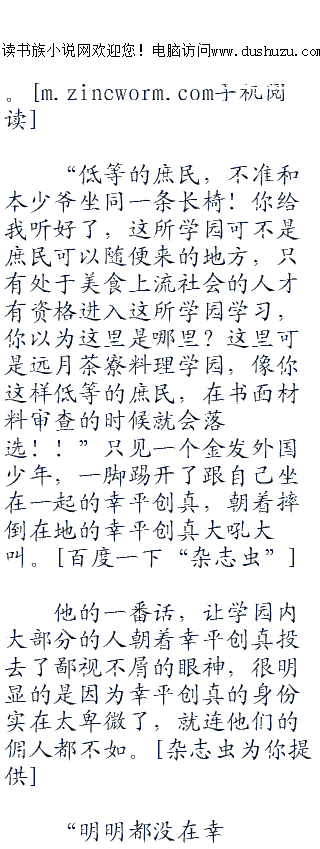 读书族小说网欢迎您！电脑访问www.dushuzu.com
。[m.zincworm.com手机阅
读]
“低等的庶民，不准和
本少爷坐同一条长椅！你给
我听好了，这所学园可不是
庶民可以随便来的地方，只
有处于美食上流社会的人才
有资格进入这所学园学习，
你以为这里是哪里？这里可
是远月茶寮料理学园，像你
这样低等的庶民，在书面材
料审查的时候就会落
选！！”只见一个金发外国
少年，一脚踢开了跟自己坐
在一起的幸平创真，朝着摔
倒在地的幸平创真大吼大
叫。[百度一下“杂志虫”]
他的一番话，让学园内
大部分的人朝着幸平创真投
去了鄙视不屑的眼神，很明
显的是因为幸平创真的身份
实在太卑微了，就连他们的
佣人都不如。[杂志虫为你提
供]
“明明都没在幸